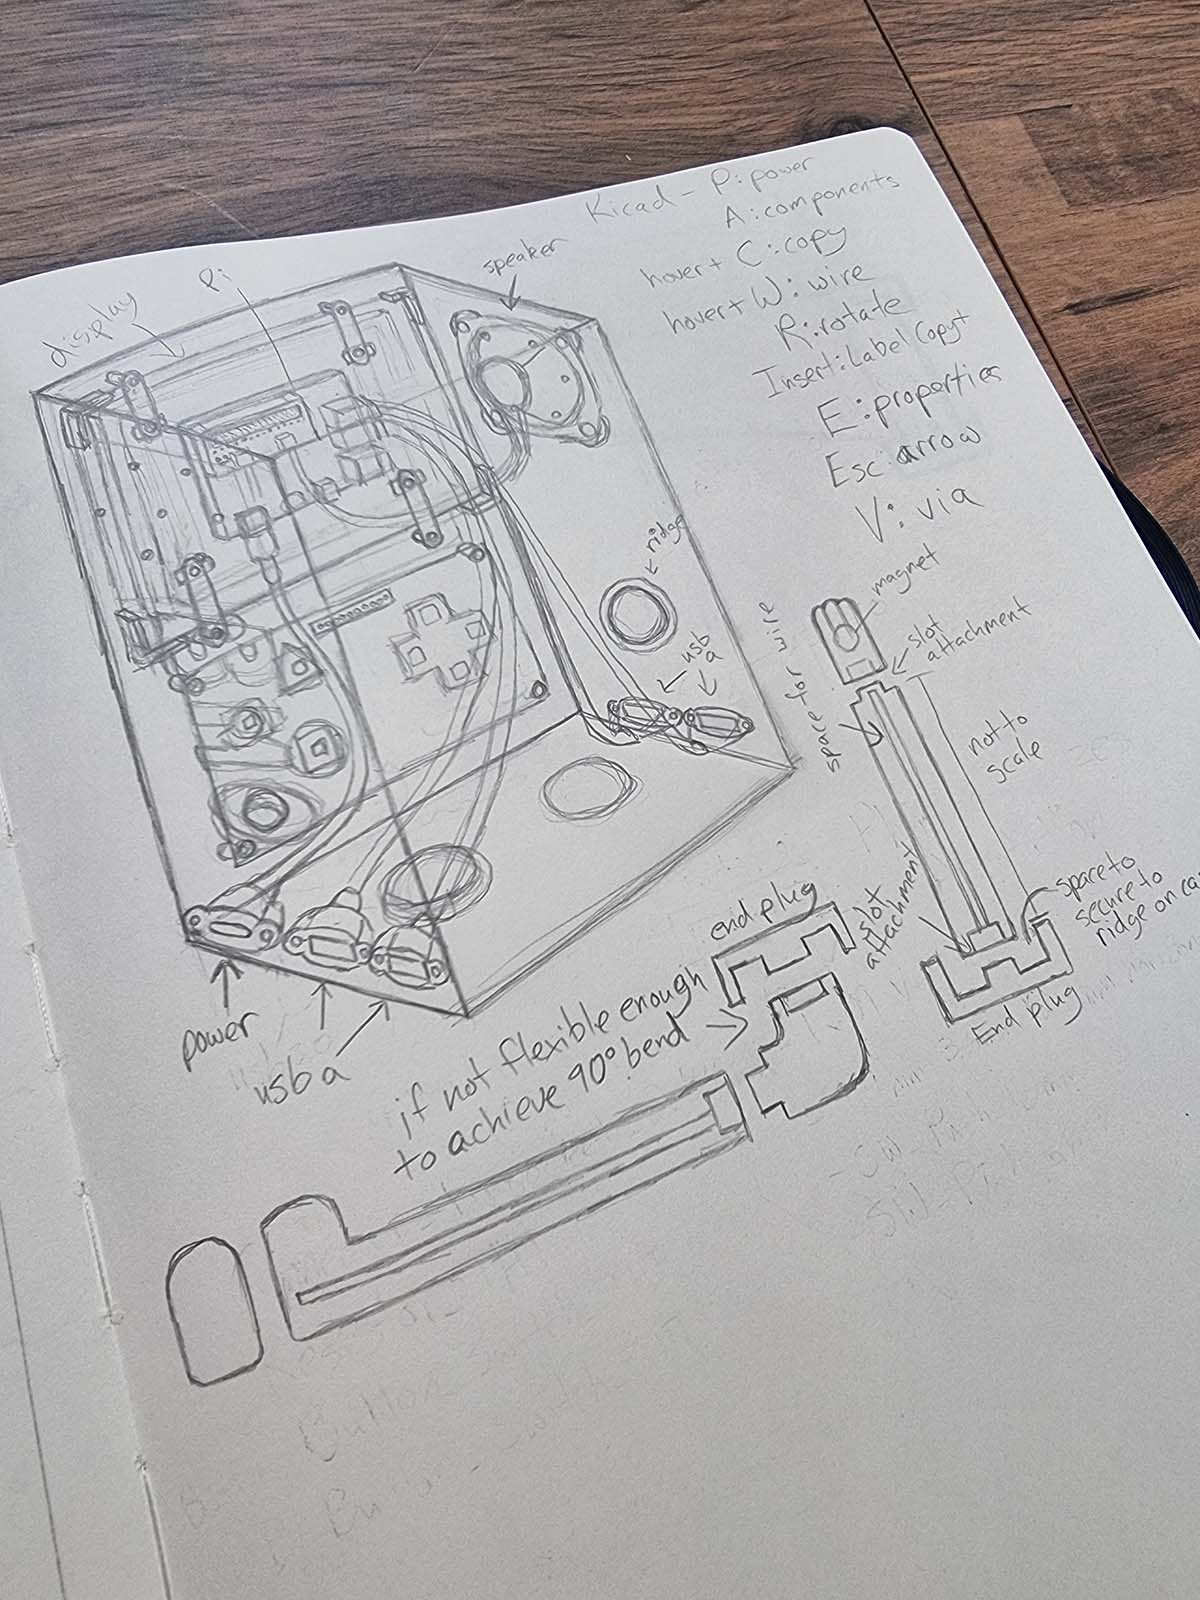 Kicad - P: power
A: components
hover + C: copy
hover + W: wire
R: rotate
Insert: Label Copy+
E: properties
Esc: arrow
V: via
display
Pi
speaker
ridge
usb
a
power
usb a
magnet
slot
attachment
space for wire
not to
scale
slot
attachment
space to
secure to
ridge on
End plug
end plug
if not flexible enough
to achieve 90° bend